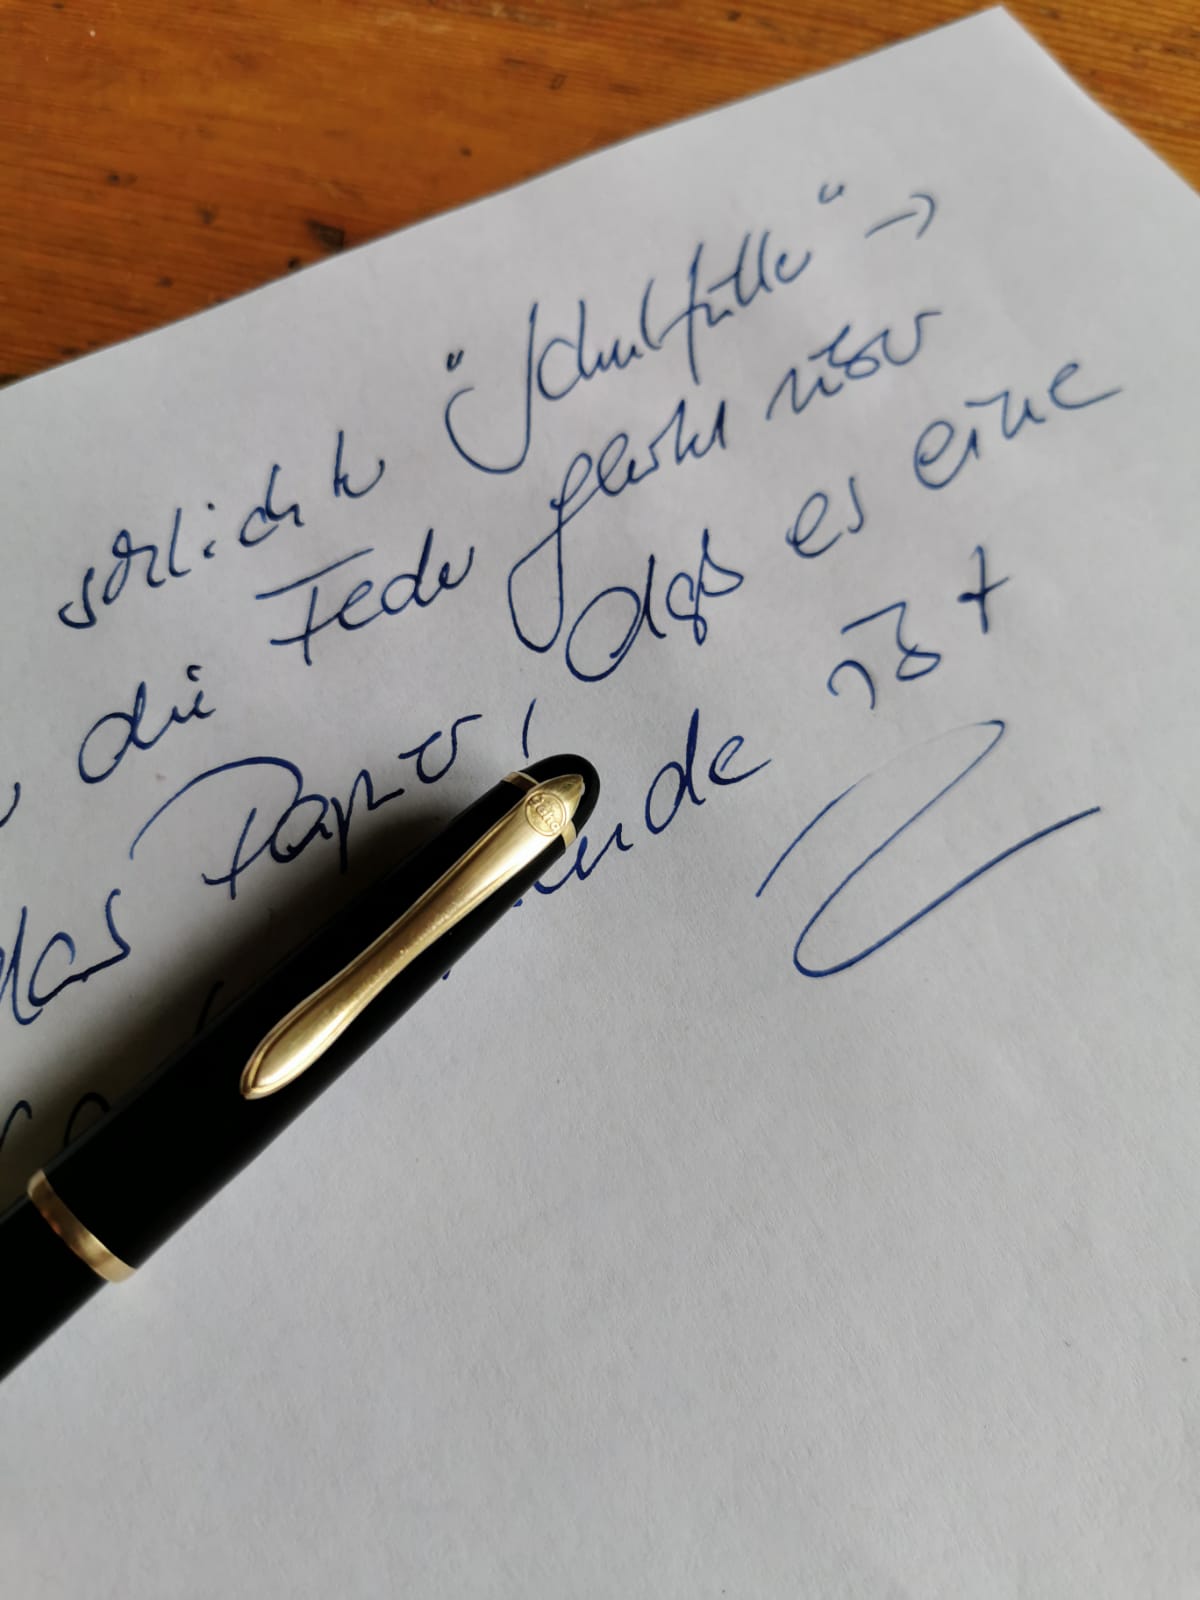 schlichte "Schulfüller" →
die Feder gleitet über
das Papier, daß es eine
ist